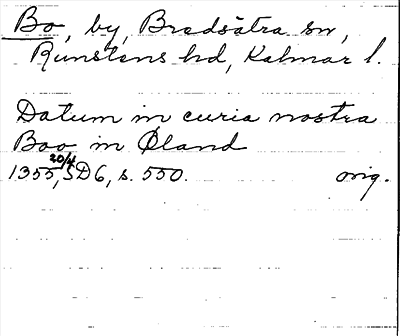 Bo, by, Bredsätra sn,
Runstens hd, Kalmar l.
Datum in curia nostra
Boo in Øland
20/4
1355, SD6, s. 550. orig.